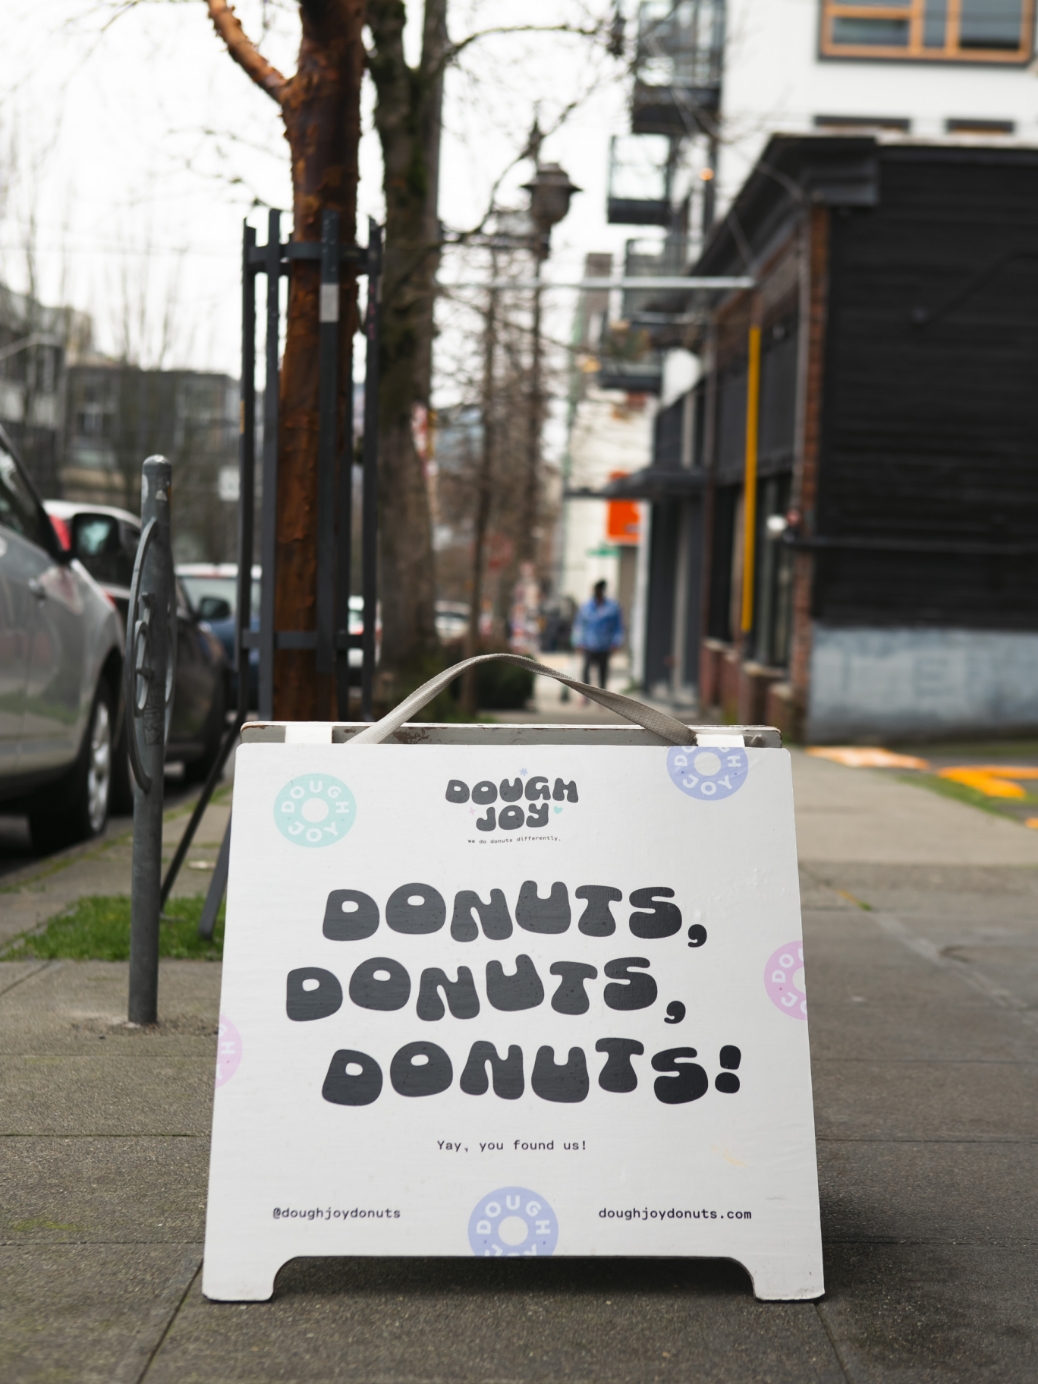 DOUGH
JOY
DOUGH
JOY
we do donuts differently.
DOUGH
JOY
DONUTS,
DONUTS,
DONUTS!
Yay, you found us!
@doughjoydonuts
DOUGH
JOY
doughjoydonuts.com